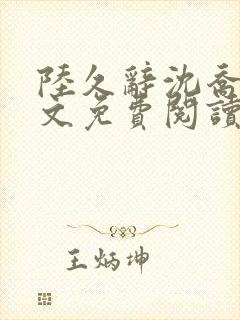 陸久辭沈喬
文免費閱讀
王炳坤